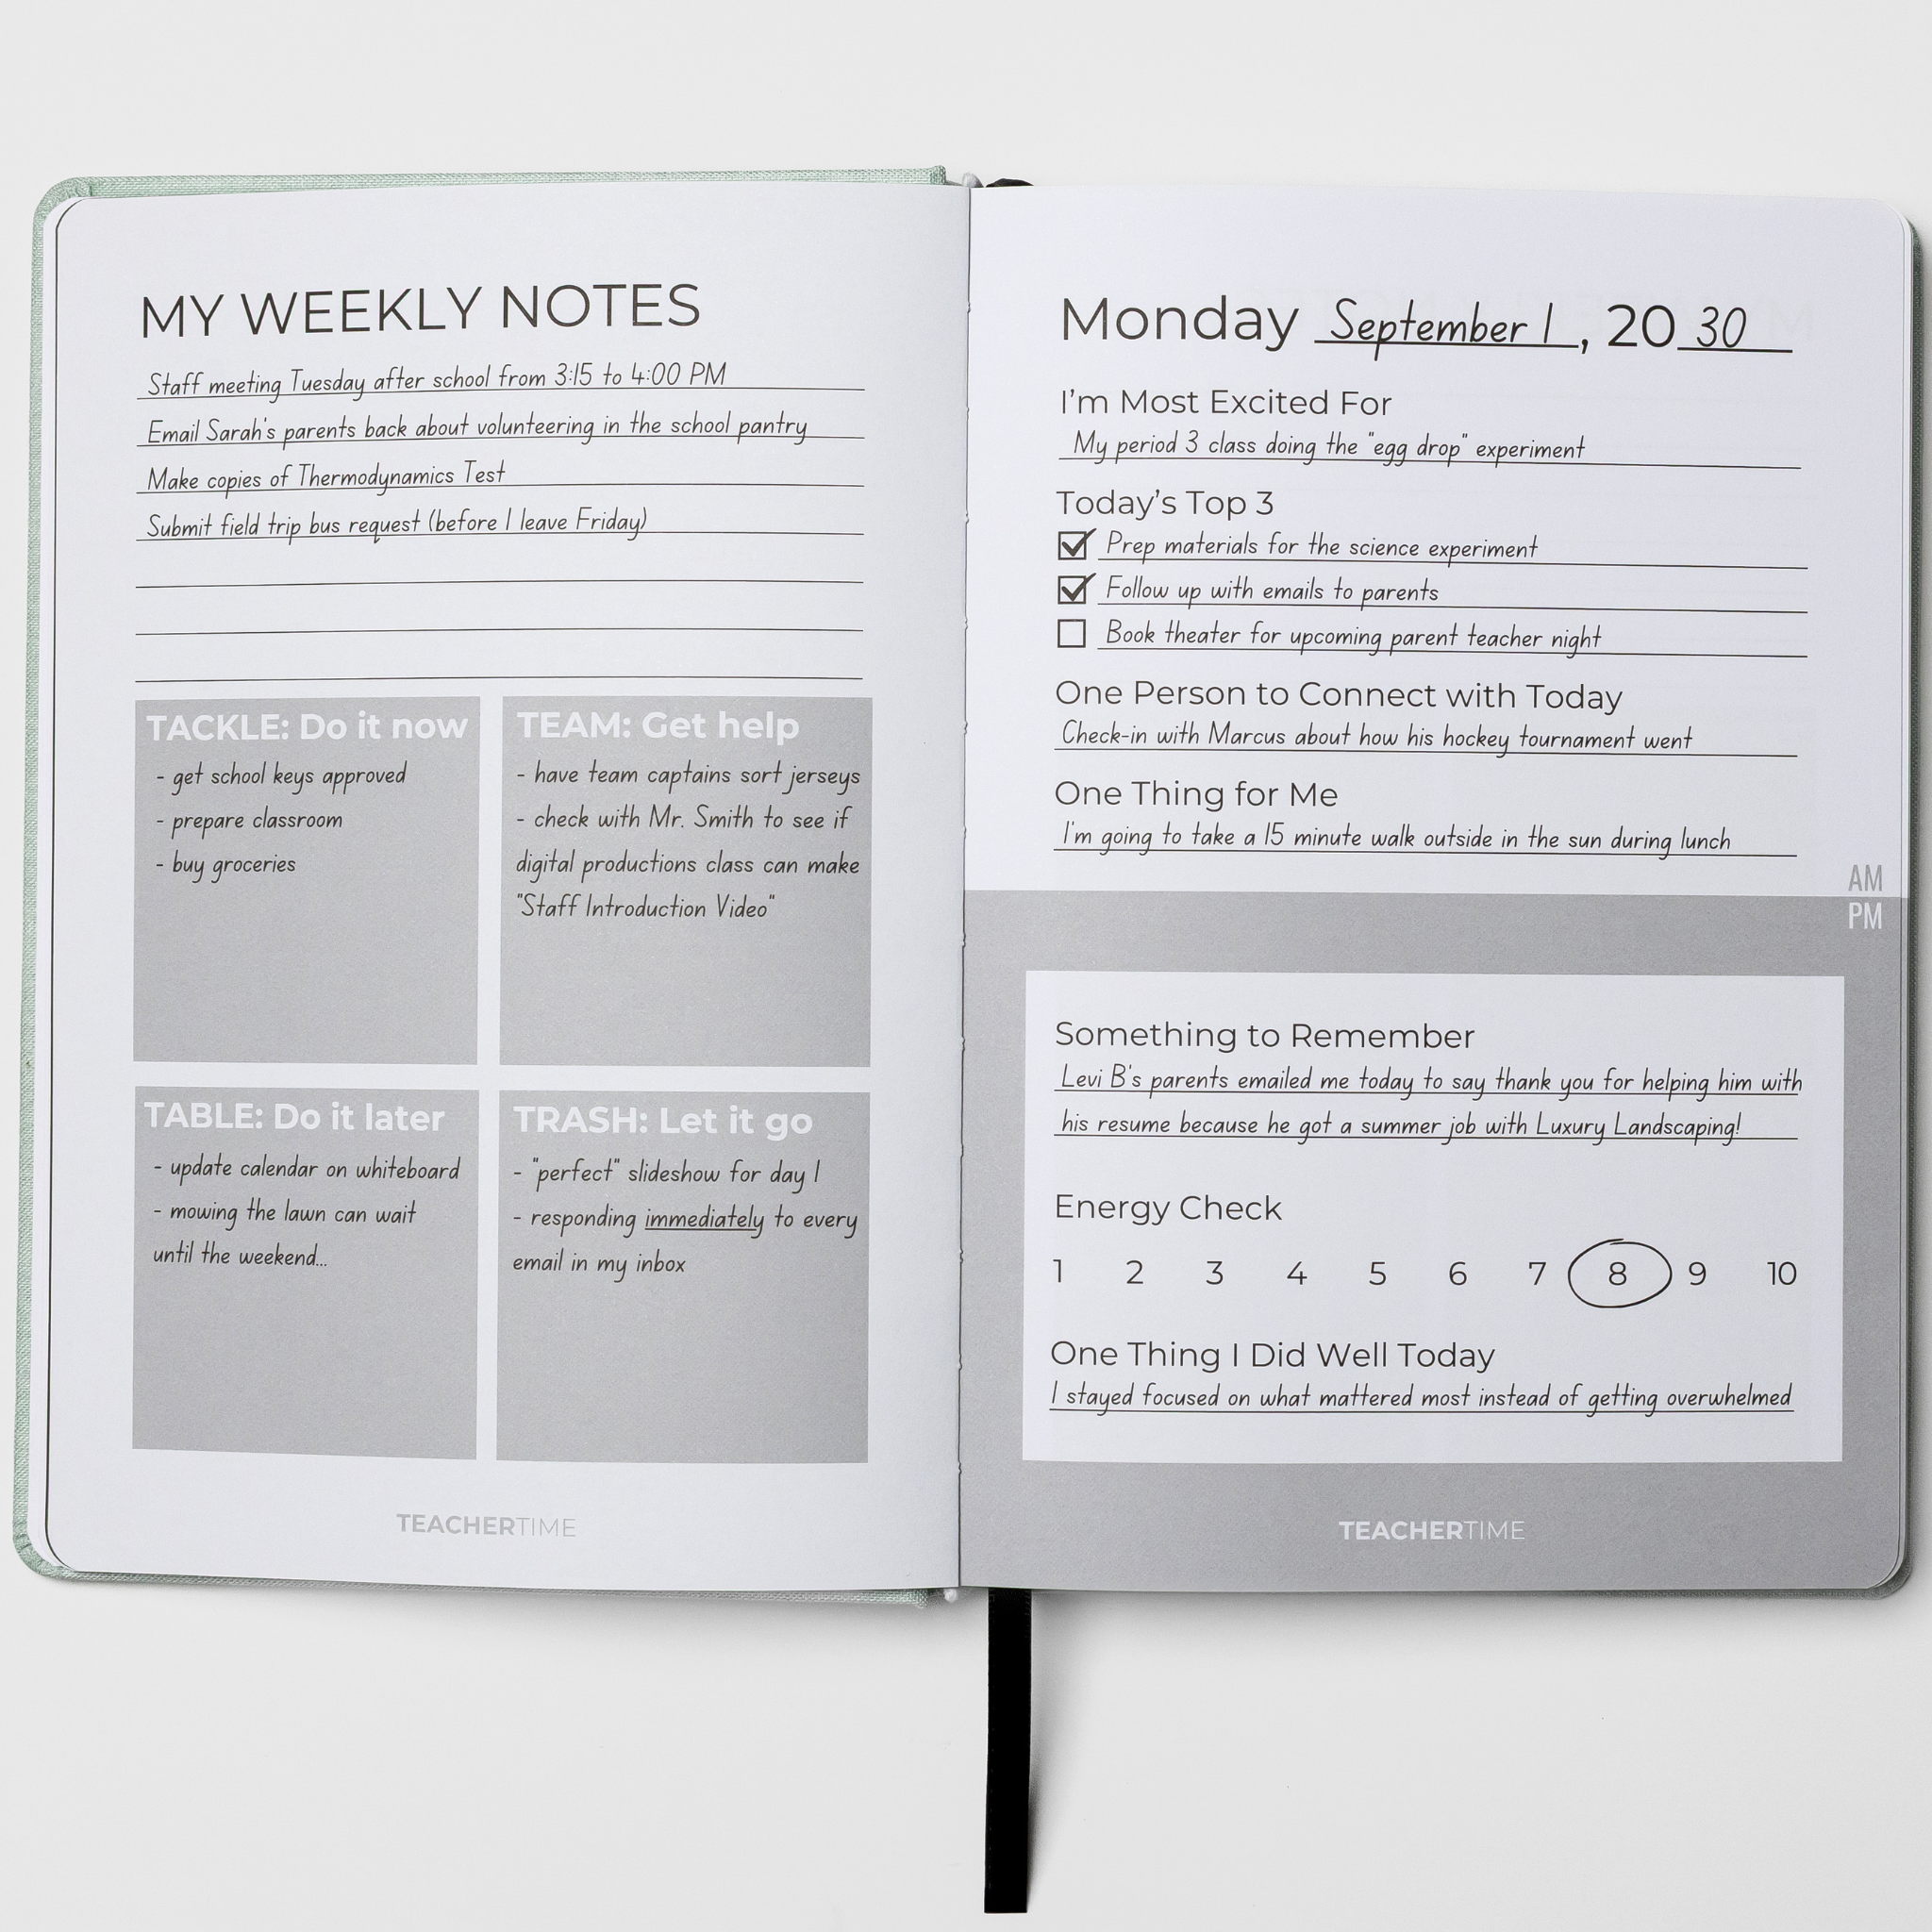 MY WEEKLY NOTES
Staff meeting Tuesday after school from 3:15 to 4:00 PM
Email Sarah's parents back about volunteering in the school pantry
Make copies of Thermodynamics Test
Submit field trip bus request (before I leave Friday)
TACKLE: Do it now
- get school keys approved
- prepare classroom
- buy groceries
TEAM: Get help
- have team captains sort jerseys
- check with Mr. Smith to see if
digital productions class can make
"Staff Introduction Video"
TABLE: Do it later
- update calendar on whiteboard
- mowing the lawn can wait
until the weekend...
TRASH: Let it go
- "perfect" slideshow for day 1
- responding immediately to every
email in my inbox
TEACHERTIME
Monday September 1, 2030
I'm Most Excited For
My period 3 class doing the "egg drop" experiment
Today's Top 3
Prep materials for the science experiment
Follow up with emails to parents
Book theater for upcoming parent teacher night
One Person to Connect with Today
Check-in with Marcus about how his hockey tournament went
One Thing for Me
I'm going to take a 15 minute walk outside in the sun during lunch
AM
PM
Something to Remember
Levi B's parents emailed me today to say thank you for helping him with
his resume because he got a summer job with Luxury Landscaping!
Energy Check
1 2 3 4 5 6 7 8 9 10
One Thing I Did Well Today
I stayed focused on what mattered most instead of getting overwhelmed
TEACHERTIME